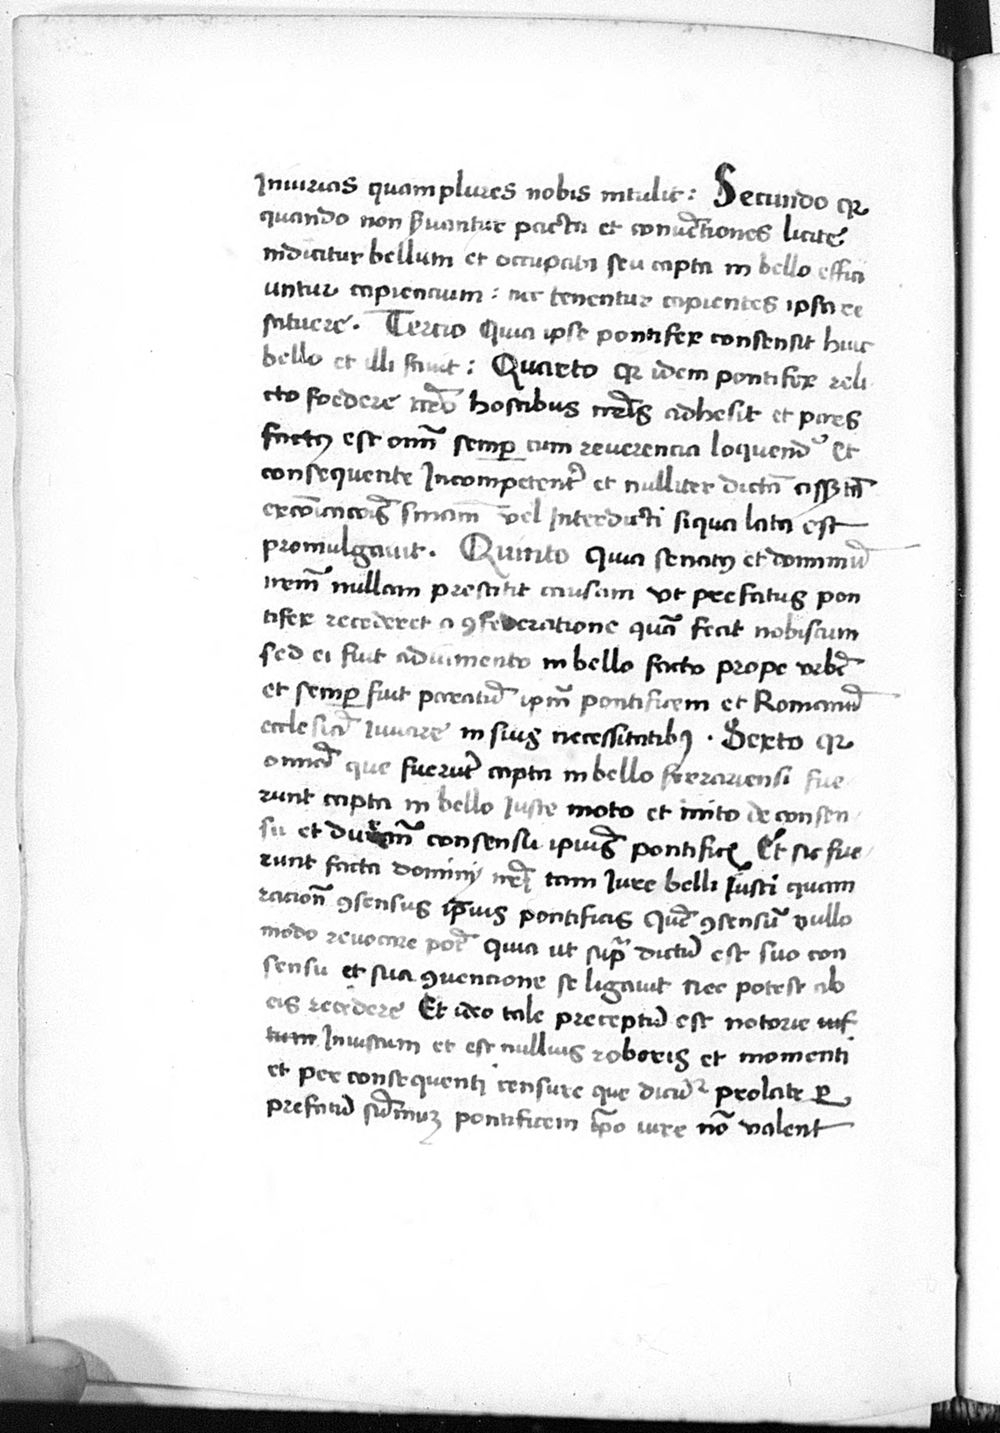 Iniurias quamplures nobis intulit: Secundo qꝛ
quando non ẜuantur pacta et conuētiones licite
indicitur bellum et occupata seu capta in bello effici
untur capiencium: nec tenentur capientes ipsa re
stituere. Tercio Quia ipse pontifex consensit huic
bello et illi fauit: Quarto qꝛ idem pontifex reli
cto foedere nr̄o hostibus nr̄is adhesit et pars
factꝰ est om̄i semꝑ cum reuerencia loquendo Et
consequente Incompetent̄ et nulliter dictā
excōicacōis sniam vel Interdicti siqua lata est
promulgauit. Quinto Quia senatꝰ et dominiū
nr̄m nullam prestitit causam vt prefatus pon
tifex recederet a ꝯfederatione quā fecit nobiscum
sed ei fuit adiumento in bello facto prope vrbē
et semꝑ fuit paratū ipm̄ pontificem et Romanā
ecclesiā Iuuare in suis necessitatibꝰ. Sexto qꝛ
omnia que fuerūt capta in bello ferrariensi fue
runt capta in bello Iuste moto et inito de consen
su et consensu ipius pontificis Et sic fue
runt facta dominij nr̄i tam Iure belli Iusti quam
racion̄ ꝯsensus ip̄ius pontificis Quē ꝯsensū nullo
modo reuocare pot̄ quia ut supͣ dictū est suo con
sensu et sua ꝯuencione se ligauit nec potest ab
eis recedere Et ideo tale preceptū est notorie iniꝰ
tum Iniustum et est nullius roboris et momenti
et per consequenti censure que dicūtr prolate ꝑ
prefatū sūmuꝫ pontificem ip̄o iure nō valent